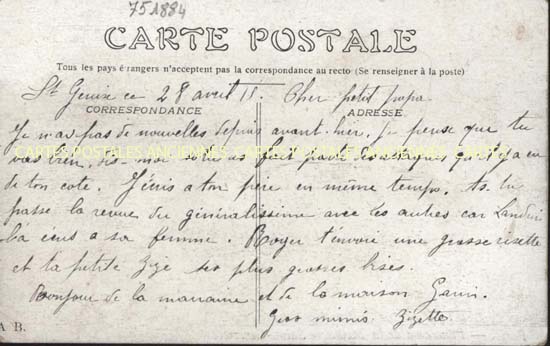 751884
CARTE POSTALE
Tous les pays étrangers n'acceptent pas la correspondance au recto (Se renseigner à la poste)
St Genix ce 28 avril 15. Cher petit papa
CORRESPONDANCE ADRESSE
Je n'as pas de nouvelles depuis avant-hier. Je pense que tu
CARTES POSTALES ANCIENNES CARTES POSTALES ANCIENNES CARTES
vas bien, dis-moi si fait parti attaques qu'il y a eu
de ton cote. J'écris a ton père en même temps. As tu
passé la revue du généralissime avec les autres car
là ecris a sa femme. Roger t'envoie une grosse risette
et ta petite Zize ses plus grosses bises.
Bonjour de la marraine et de la maison Garin.
Gros mimis Zizette
A B.